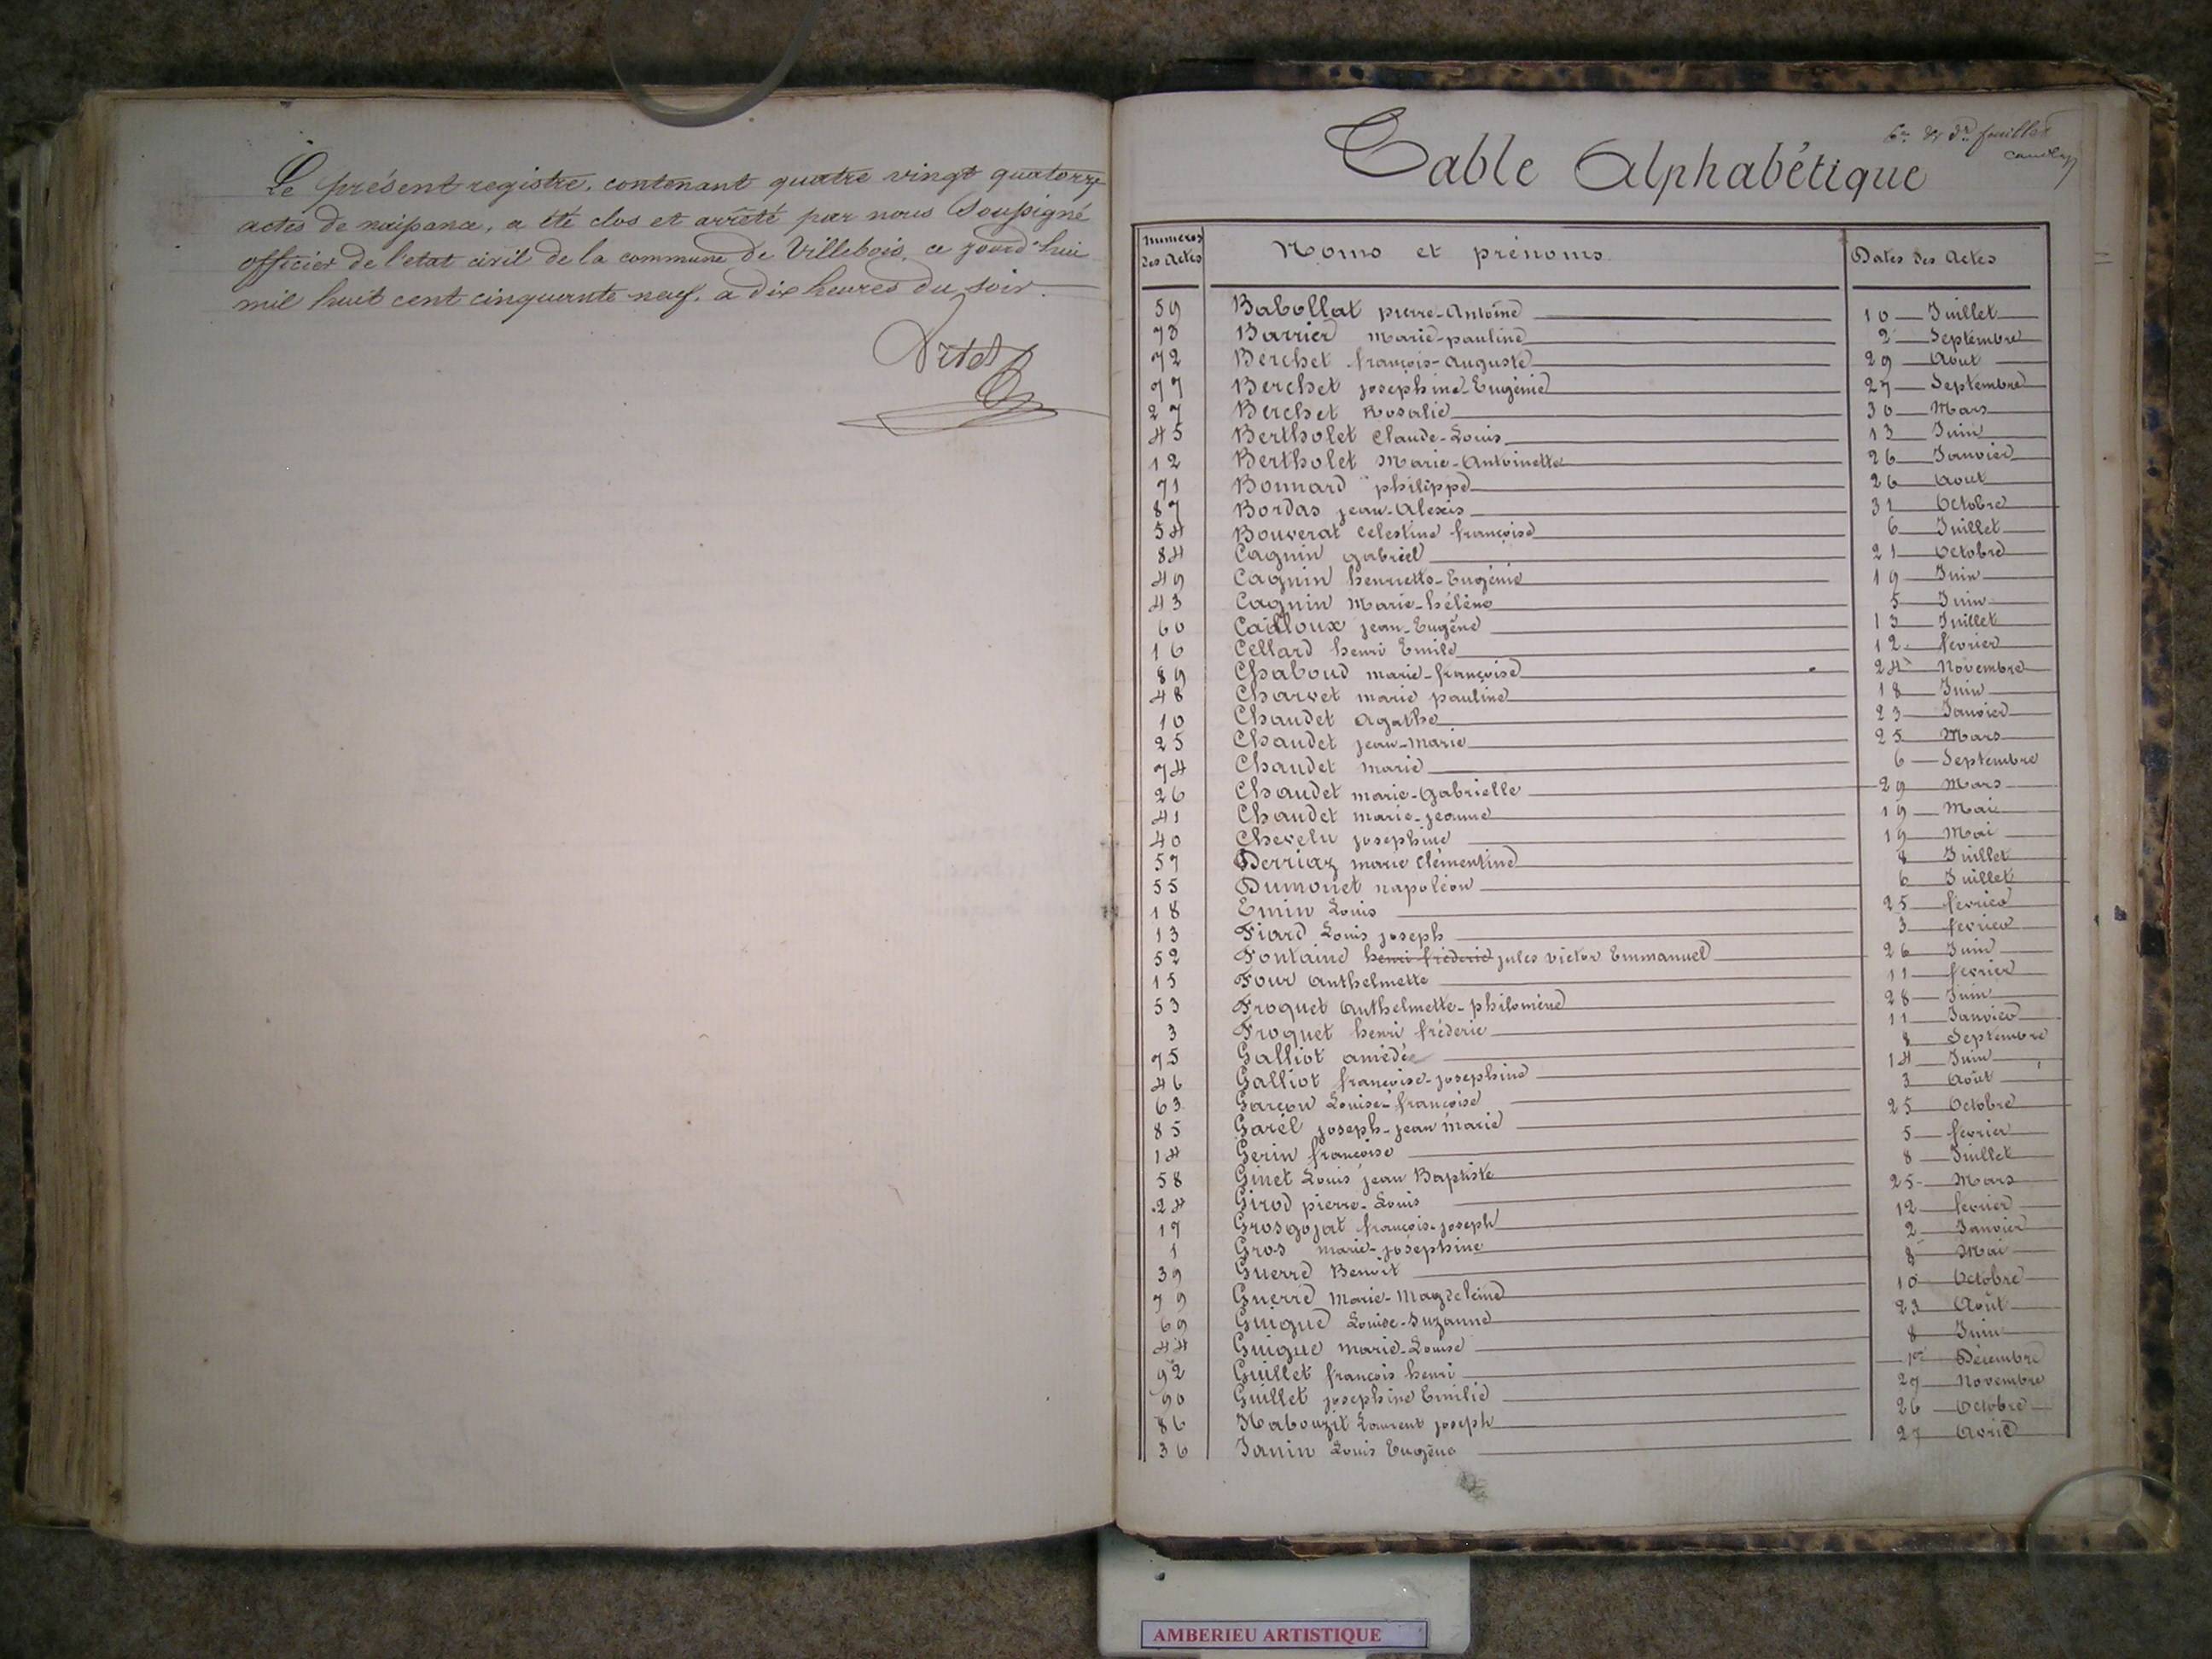 Le présent registre, contenant quatre vingt quatorze
actes de naissance, a été clos et arrêté par nous Soussigné
officier de l'etat civil de la commune de Villebois, ce jourd'hui
mil huit cent cinquante neuf, a dix heures du soir.
Table Alphabétique
Numeros des Actes Noms et prénoms Dates des Actes
59 Babollat pierre-Antoine 10 Juillet
73 Barrier marie-pauline 2 Septembre
72 Berchet françois-Auguste 29 Aout
77 Berchet josephine-Eugénie 27 Septembre
27 Berchet Rosalie 30 Mars
45 Bertholet Claude-Louis 13 Juin
12 Bertholet Marie-Antoinette 26 Janvier
71 Bonnard philippe 26 Aout
87 Bordas jean-Alexis 31 Octobre
54 Bouverat Celestine françoise 6 Juillet
84 Cagnin gabriel 21 Octobre
49 Cagnin henriette-Eugénie 19 Juin
43 Cagnin Marie-héléne 5 Juin
60 Cailloux jean-Eugéne 13 Juillet
16 Cellard henri Emile 12 fevrier
89 Chaboud marie-françoise 24 Novembre
48 Charvet marie pauline 18 Juin
10 Chaudet Agathe 23 Janvier
25 Chaudet jean-marie 25 Mars
74 Chaudet marie 6 Septembre
26 Chaudet marie-Gabrielle 29 Mars
41 Chaudet marie-jeanne 19 Mai
40 Chevelu josephine 19 Mai
57 Derriaz marie Clémentine 8 Juillet
55 Dumonet napoléon 6 Juillet
18 Emin Louis 25 fevrier
13 Fiard Louis joseph 3 fevrier
52 Fontaine henri fréderic jules victor Emmanuel 26 Juin
15 Four Anthelmette 11 fevrier
53 Froquet Anthelmette-philoméne 28 Juin
3 Froquet henri fréderic 11 Janvier
75 Galliot amédée 8 Septembre
46 Galliot françoise-josephine 14 Juin
63 Garçon Louise-françoise 3 Août
85 Garel joseph-jean marie 25 Octobre
14 Gerin françoise 5 fevrier
58 Ginet Louis jean Baptiste 8 Juillet
24 Girod pierre-Louis 25 Mars
17 Grosgojat françois-joseph 12 fevrier
1 Gros marie-joséphine 2 Janvier
39 Guerre Benoit 8 Mai
79 Guerre Marie-Magdeleine 10 Octobre
69 Guigue Louise-Suzanne 23 Août
44 Guigue Marie-Louise 8 Juin
92 Guillet françois henri 1er Décembre
90 Guillet josephine Emilie 27 Novembre
86 Habouzit Laurent joseph 26 Octobre
36 Janin Louis Eugéne 27 Avril
AMBERIEU ARTISTIQUE